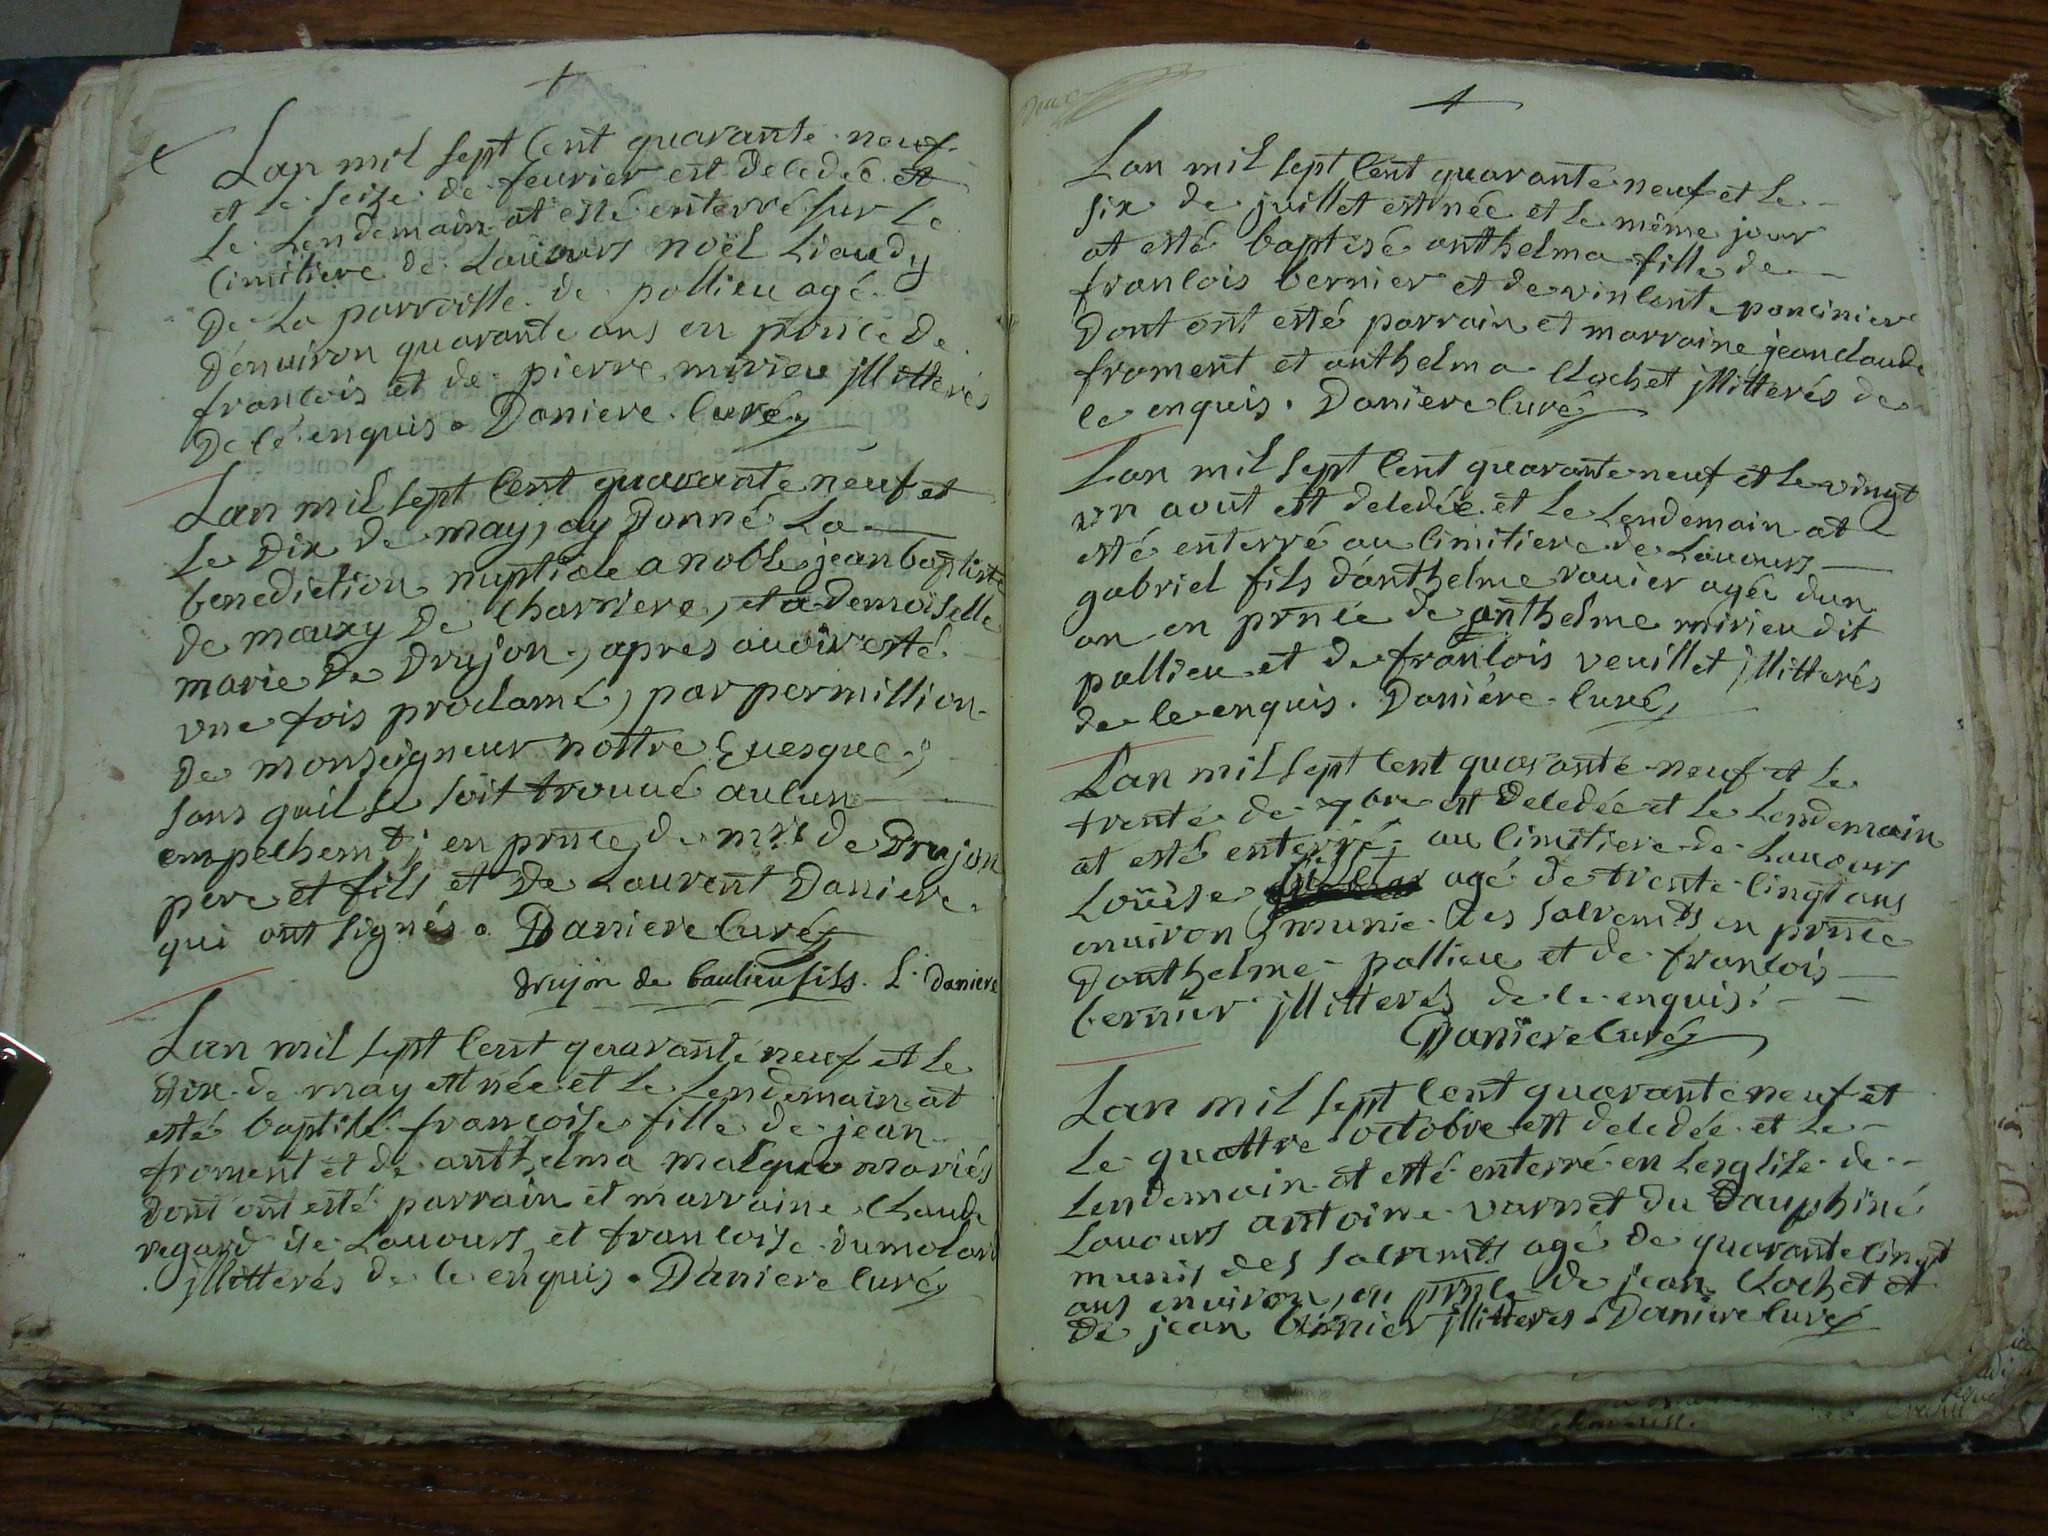 Lan mil sept Cent quarante neuf
et le seize de feurier est decedée et
le Lendemain at esté enterré sur le
Cimitiere de Lauours noël Liaudy
De La parroisse de pollieu agé
D'enuiron quarante ans en pnce de
francois et de pierre mirieu jllitterés
De ce enquis. Daniere Curé
Lan mil sept Cent quarante neuf et
Le Dix de may, ay Donné La
benediction nuptiale a noble jean baptiste
de mauxy De Charriere, et a demoiselle
marie De Drujon, apres auoir esté
vne fois proclamé, par permission
de monseigneur nostre Euesque,
sans quil se soit trouué aucun
empechemt; en pnce de mrs de Drujon
pere et fils et De Laurent Daniere
qui ont signés. Daniere Curé
Drujon de baulieu fils. L. Daniere
Lan mil sept Cent quarante neuf et le
Dix de may est née et le Lendemain at
esté baptisé françoise fille de jean
froment et de anthelma masquo mariés
Dont ont esté parrain et marraine Claude
regard de Lauours et francoise dumolard
jllitterés de ce enquis. Daniere Curé
Lan mil sept Cent quarante neuf et le
six de juillet est née et le même jour
at esté baptisé anthelma fille de
francois bernier et de vincente poncinier
Dont ont esté parrain et marraine jean claude
froment et anthelma Clochet jllitterés de
ce enquis. Daniere Curé
Lan mil sept Cent quarante neuf et le vingt
vn aout est decedée et le Lendemain at
esté enterré au Cimitiere de Lauours
gabriel fils d'anthelme rauier agée d'un
an en pnce de anthelme mirieu dit
pallieu et de francois veuillet jllitterés
de ce enquis. Daniére Curé
Lan mil sept Cent quarante neuf et le
trente de 7bre est Decedée et le Lendemain
at esté enterré au Cimitiere de Lauours
Loüise agé de trente Cinqt ans
enuiron munie des sacremts en pnce
Danthelme pallieu et de francois
bernier jllitterés de ce enquis.
Daniere Curé
Lan mil sept Cent quarante neuf et
Le quattre octobre est decedée et Le
Lendemain at esté enterré en Lesglise de
Lauours antoine varnet du Dauphiné
munis des sacremts agé de quarante cinqt
ans enuiron, en pnce de jean Clochet et
de jean bernier jllitteres. Daniere Curé